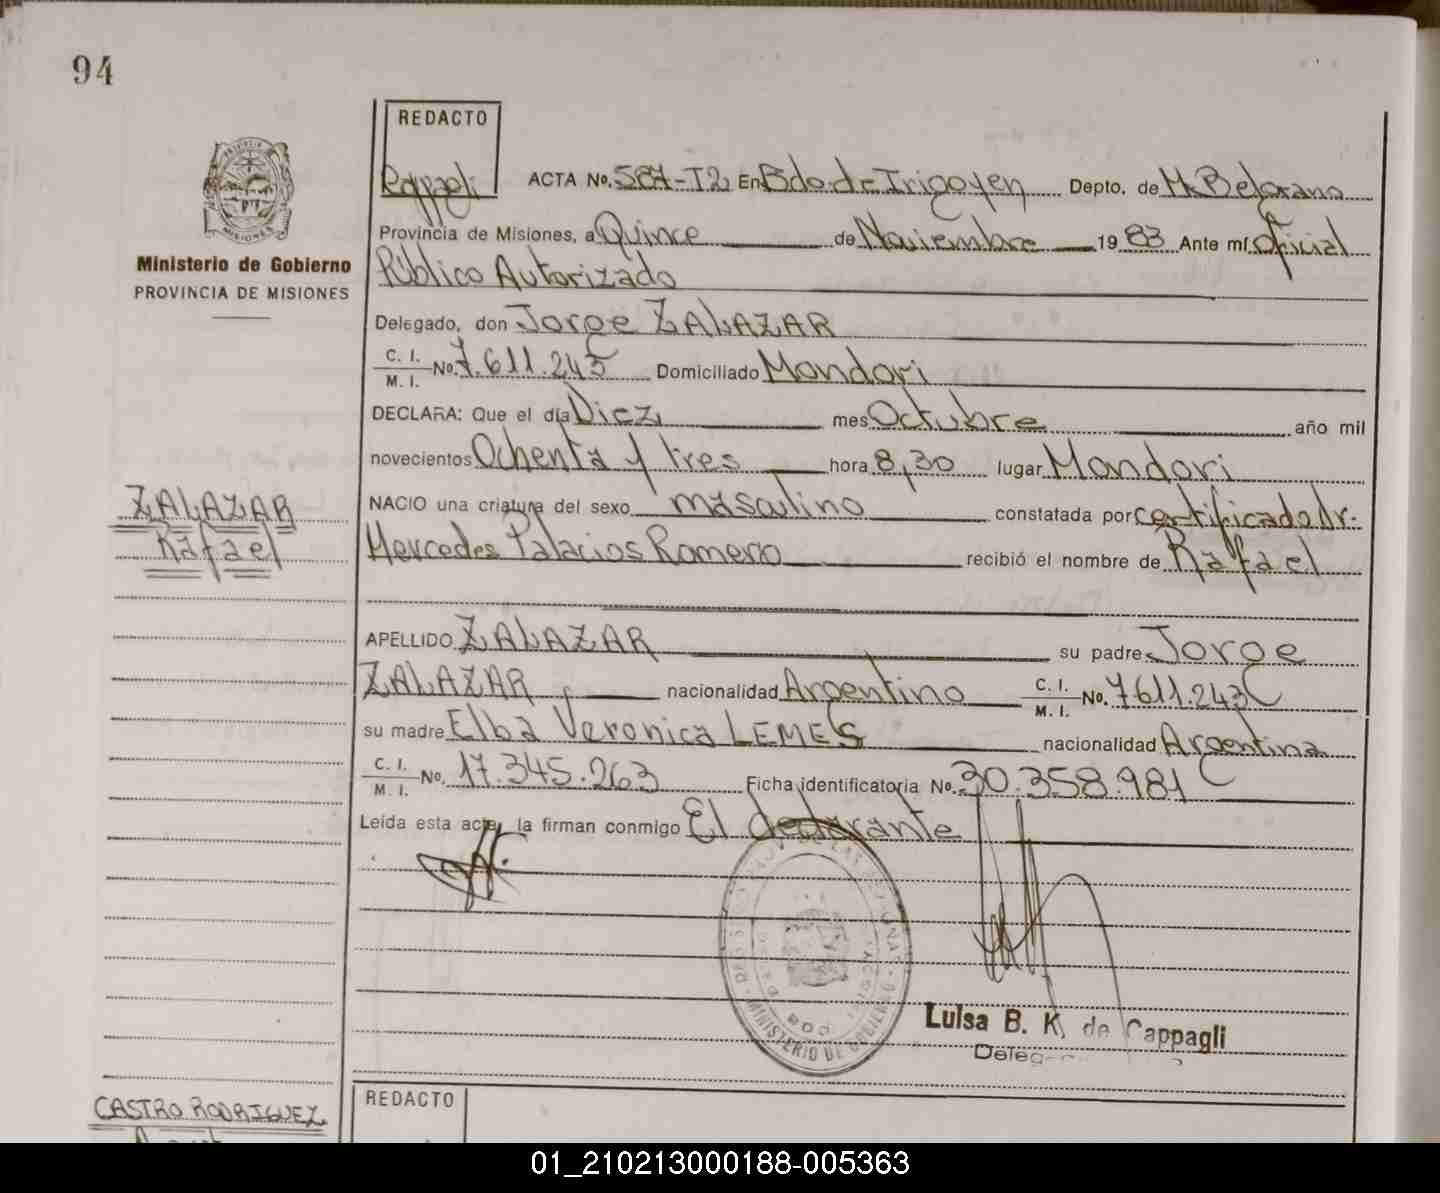 94
REDACTO
Cappagli
ACTA No. 587-T2 En Bdo. de Irigoyen Depto. de M. Belgrano
Provincia de Misiones, a Quince de Noviembre 1983 Ante mí, Oficial
Público Autorizado
Ministerio de Gobierno
PROVINCIA DE MISIONES
Delegado, don Jorge ZALAZAR
C. I.
M. I. No. 7.611.243 Domiciliado Mondori
DECLARA: Que el día Diez mes Octubre año mil
novecientos Ochenta y tres hora 8,30 lugar Mondori
ZALAZAR
Rafael
NACIO una criatura del sexo masculino constatada por certificado Dr.
Mercedes Palacios Romero recibió el nombre de Rafael
APELLIDO ZALAZAR su padre Jorge
ZALAZAR nacionalidad Argentino C. I.
M. I. No. 7611.243
su madre Elba Veronica LEMES nacionalidad Argentina
C. I.
M. I. No. 17.345.263 Ficha identificatoria No. 30.358.981
Leída esta acta, la firman conmigo El declarante
MINISTERIO DE GOBIERNO
Luisa B. K. de Cappagli
Deleg
CASTRO RODRIGUEZ
REDACTO
01_210213000188-005363